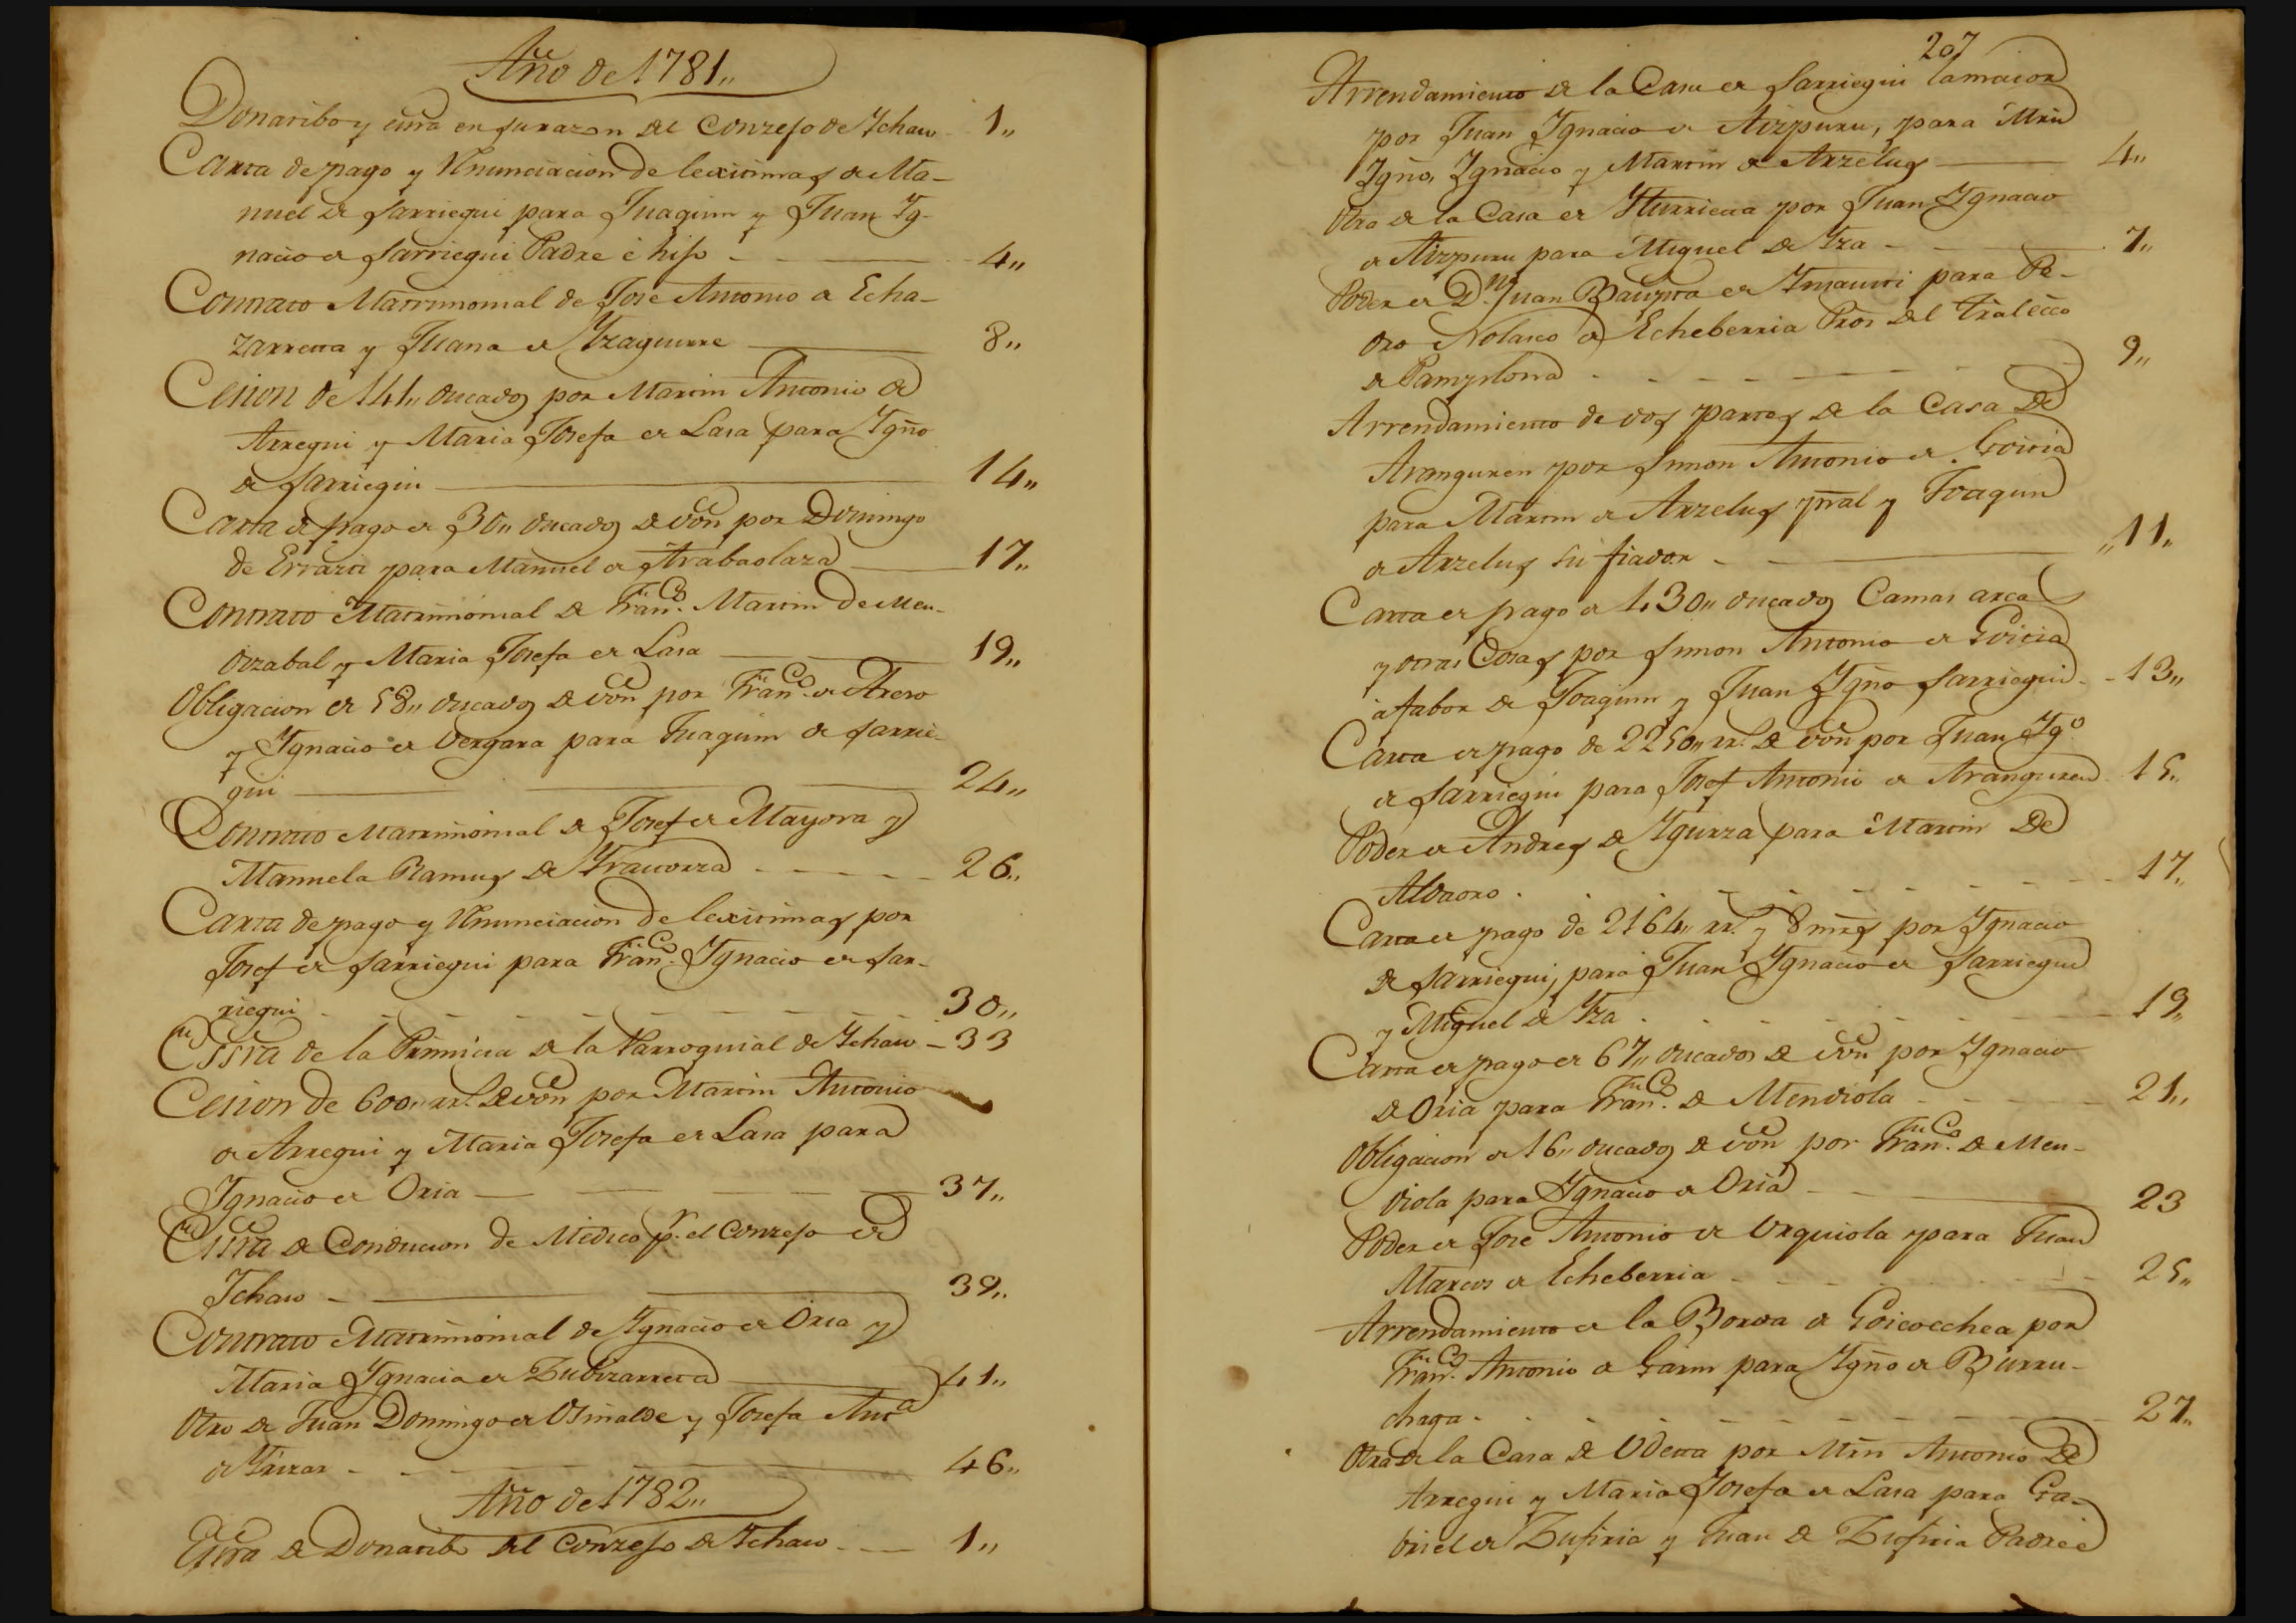 Año de 1781,,
Donatibo y essra en su razon del Conzejo de Ychaso 1,,
Carta de pago y Rnunciacion de lexitimas de Ma-
nuel de Sarriegui para Juaquin y Juan Yg-
nacio de Sarriegui Padre é hijo 4,,
Contrato Matrimonial de Jose Antonio de Echa-
zarreta y Juana de Yzaguirre 8,,
Cesion de 141,, ducados por Martin Antonio de
Arregui y Maria Josefa de Lasa para Ygño
de Sarriegui 14,,
Carta de pago de 30,, ducados de vón por Domingo
de Errazti para Manuel de Arabaolaza 17,,
Contrato Matrimonial de Franco. Martin de Men-
dizabal y Maria Josefa de Lasa 19,,
Obligacion de 58,, ducados de vón por Franco. de
y Ygnacio de Vergara para Juaquin de Sarrie-
gui 24,,
Contrato Matrimonial de Josef de Mayora y
Manuela Ramus de Yraucorza 26,,
Carta de pago y Rnunciacion de lexitimas por
Josef de Sarriegui para Franco. Ygnacio de Sar-
riegui 30,,
Essra de la Primicia de la Parroquial de Ychaso 33
Cesion de 600,, rrs. de vón por Martin Antonio
de Arregui y Maria Josefa de Lasa para
Ygnacio de Oria 37,,
Essra de Conducion de Medico pr. el Conzejo de
Ychaso 39,,
Contrato Matrimonial de Ygnacio de Oria y
Maria Ygnacia de Zubizarreta 41,,
Otro de Juan Domingo de Osinalde y Josefa Anta
de 46,,
Año de 1782,,
Essra de Donatibo del Conzejo de Ychaso 1,,
207
Arrendamiento de la Casa de Sarriegui lamaior
por Juan Ygnacio de Aizpuru, para Mrn
Ygño, Ygnacio y Martin de Arzelus 4,,
Otro de la Casa de Yturrieta por Juan Ygnacio
de Aizpuru para Miguel de Yza 7,,
Poder de Dn. Juan Bauptta de Ymausti para Pe-
dro Nolasco de Echeberria Pror del
de Pamplona 9,,
Arrendamiento de dos partes de la Casa de
Aranguren por Simon Antonio de Goitia
para Martin de Arzelus pral y Joaquin
de Arzelus su fiador 11,,
Carta de pago de 430,, ducados Camas arca
y otras Cosas por Simon Antonio de Goitia
á fabor de Joaquin y Juan Ygño Sarriegui 13,,
Carta de pago de 2250,, rrs. de vón por Juan Ygo
de Sarriegui para Josef Antonio de Aranguren 15,,
Poder de Andres de Ygurza para Martin de
Aldaoro 17,,
Carta de pago de 2164,, rrs. y 8 mrs por Ygnacio
de Sarriegui, para Juan Ygnacio de Sarriegui
y Miguel de Yza 19,,
Carta de pago de 67,, ducados de vón por Ygnacio
de Oria para Franco. de Mendiola 21,,
Obligacion de 16,, ducados de vón por Franco. de Men-
diola para Ygnacio de Oria 23
Poder de Jose Antonio de Urquiola para Juan
Marcos de Echeberria 25,,
Arrendamiento de la Borda de Goicoechea por
Franco. Antonio de Garin para Ygño de Burru-
chaga 27,,
Otra de la Casa de Odieta por Mrn Antonio de
Arregui y Maria Josefa de Lasa para Ga-
briel de Zufiria y Juan de Zufiria Padre é